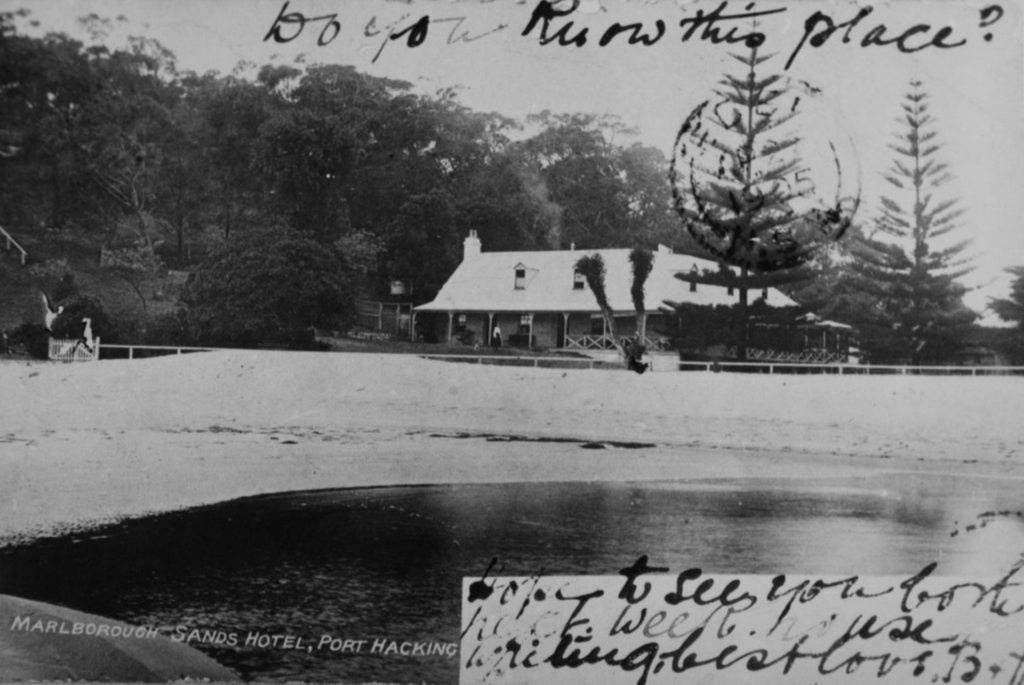 Do you Know this place?
Hope to see you both
next week. house
writing. best love. B.
MARLBOROUGH SANDS HOTEL, PORT HACKING